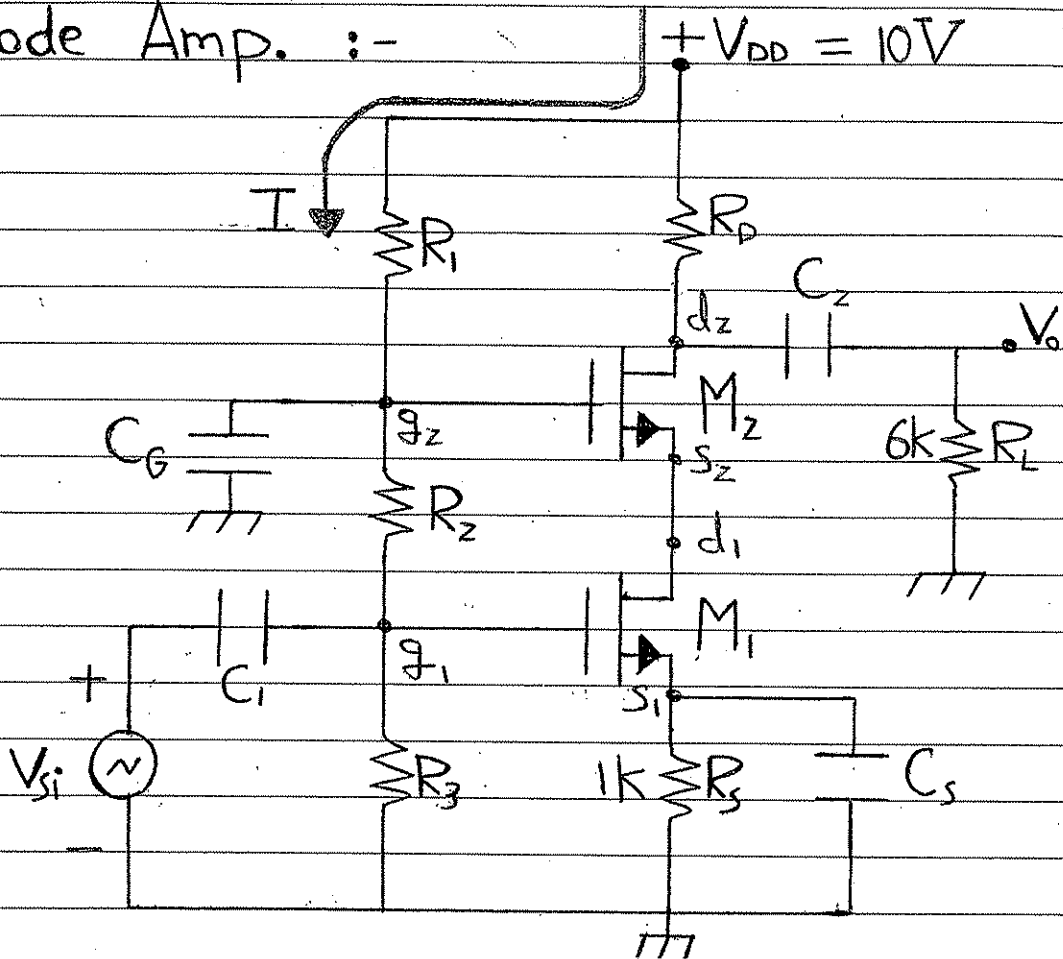 ode Amp. :-
+VDD = 10V
I
R1
RD
C2
d2
Vo
CG
g2
M2
6k RL
s2
R2
d1
C1
g1
M1
+
s1
Vsi
R3
1k Rs
Cs
-